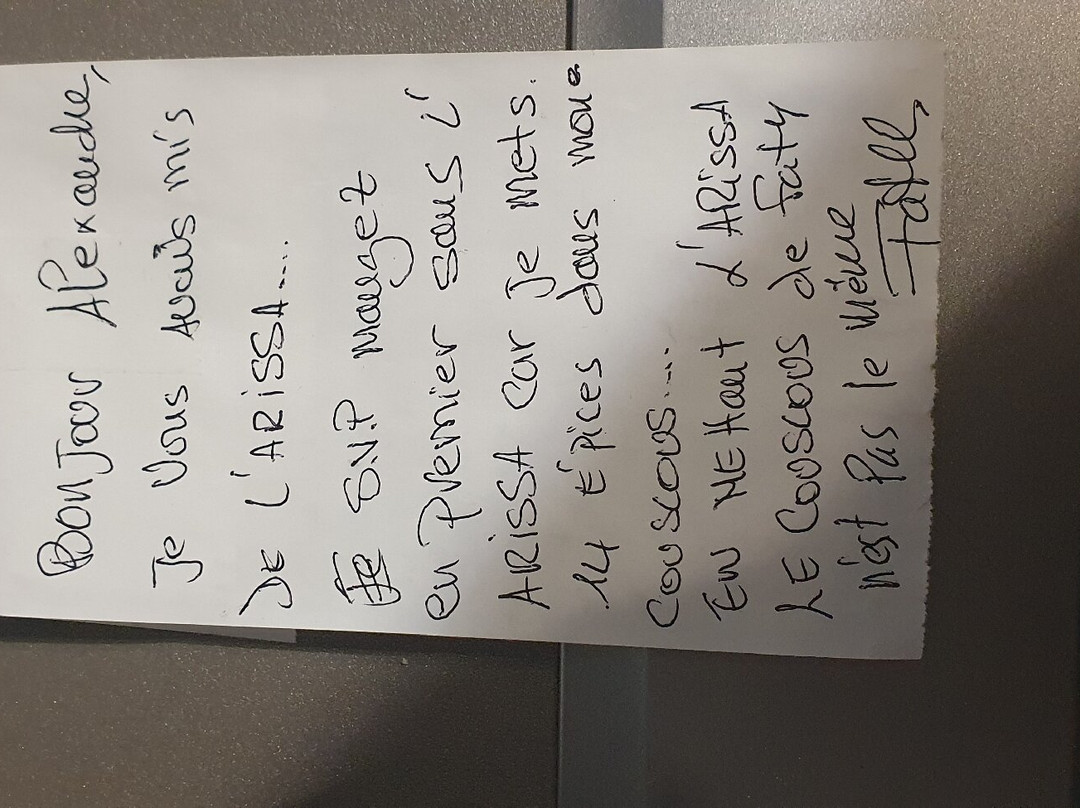 BONJOUR Alexandre,
Je Vous avais mis
DE L'ARISSA....
SVP mangez
en Premier sans L'
ARISSA car Je mets.
14 Épices dans mon
couscous....
EN METTANT L'ARISSA
LE COUSCOUS de Faty
n'est Pas le même